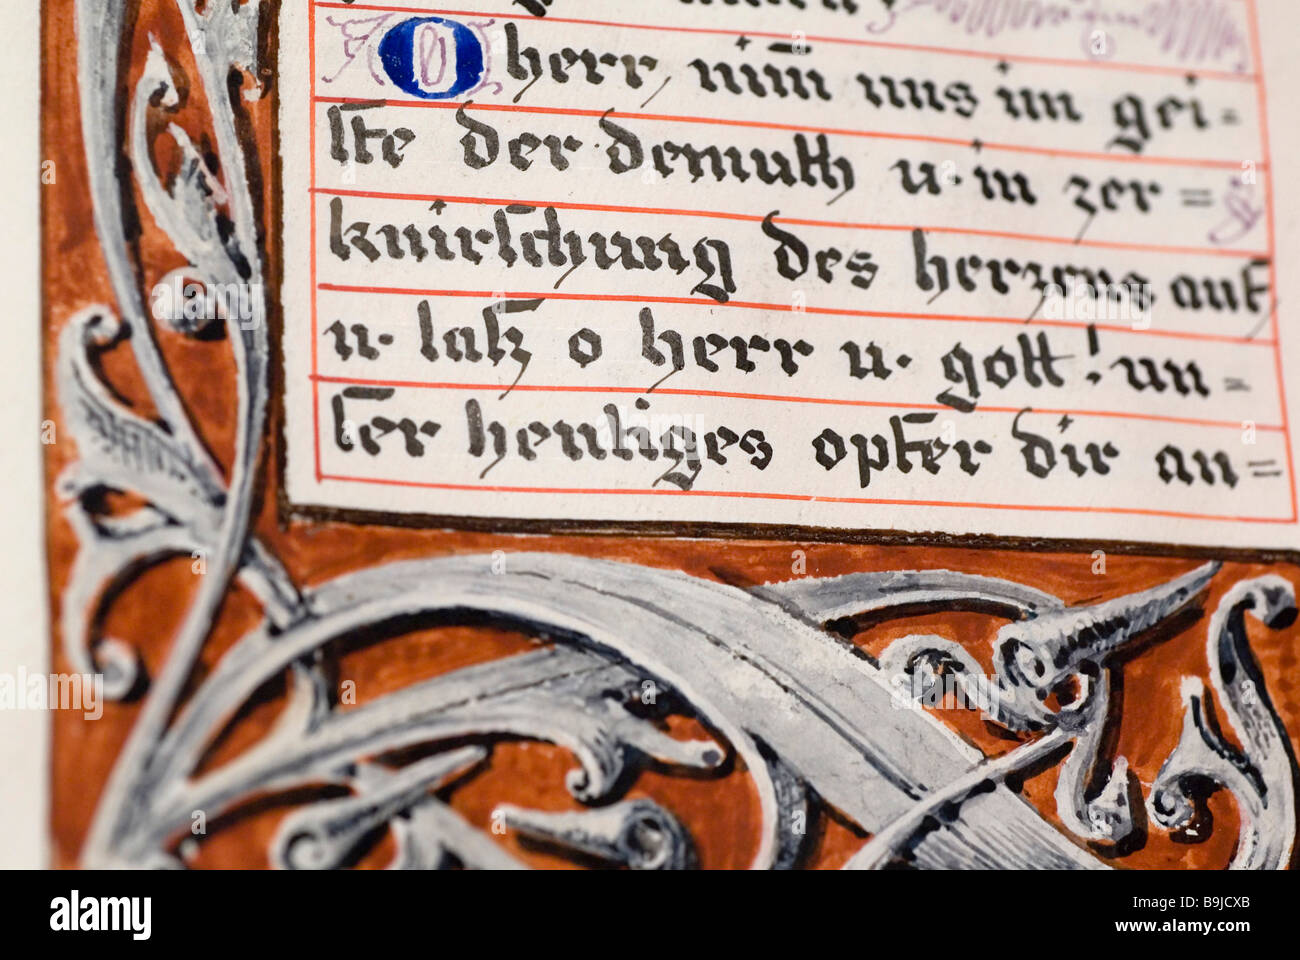 O herr, nim̄ uns im gei-
ste der demuth u. in zer=
knirschung des herzens auf
u. laß o herr u. gott! un=
ser heutiges opfer dir an=
alamy
Image ID: B9JCXB
www.alamy.com